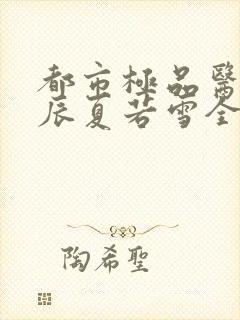 都市極品醫
辰夏若雪全
陶希聖